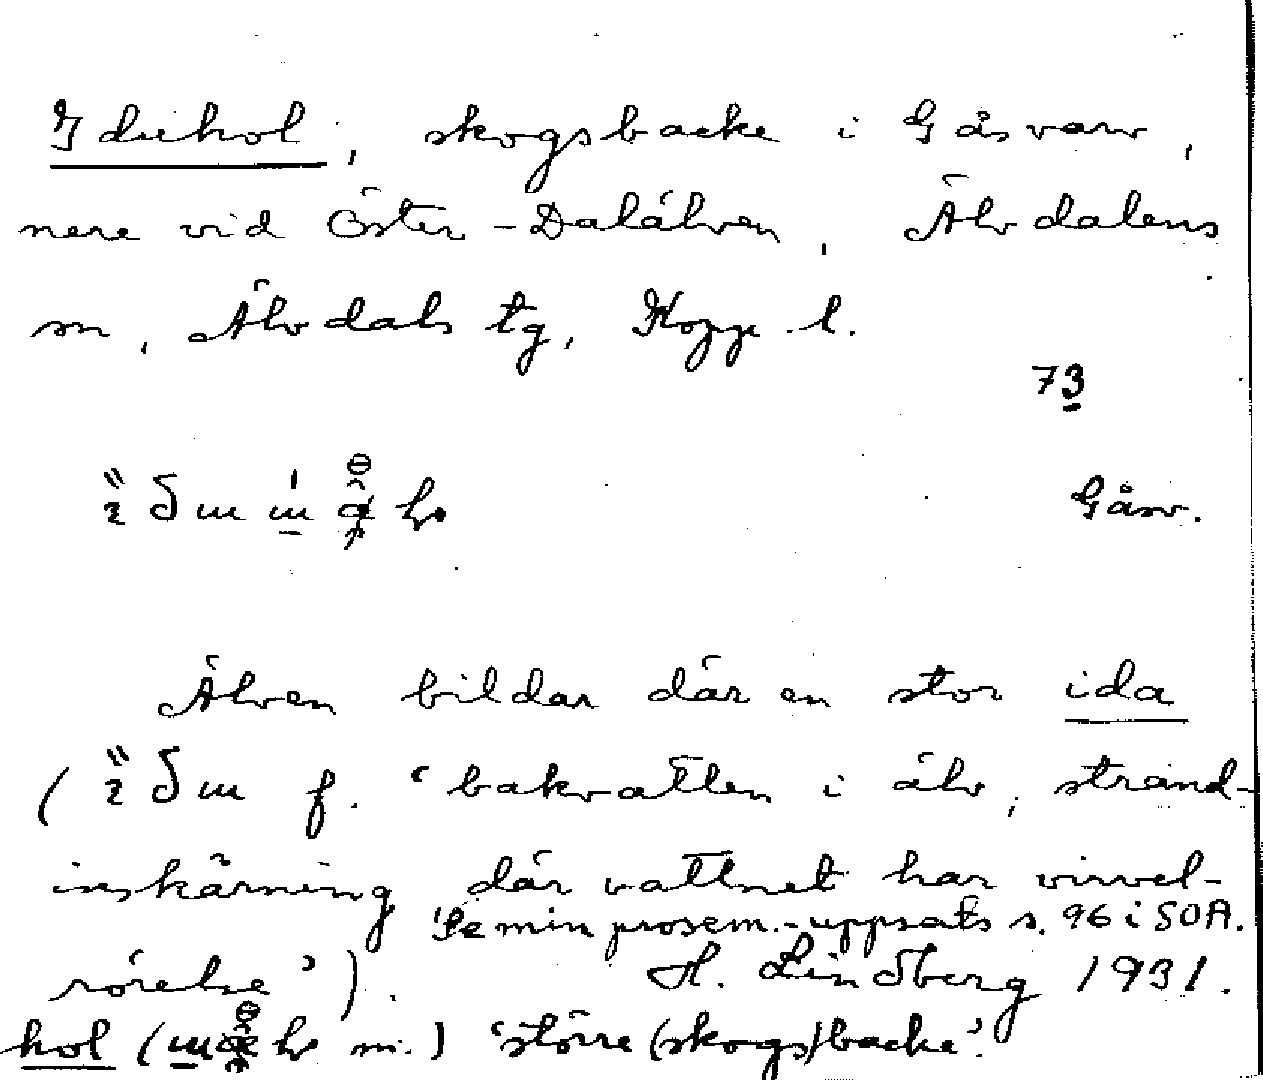 Iduhol, skogsbacke i Gåsvarv,
nere vid Öster-Dalälven, Älvdalens
sn, Älvdals tg, Kopp. l.
73
Gåsv.
Älven bildar där en stor ida
( f. 'bakvatten i älv, strand-
inskärning där vattnet har virvel-
Se min prosem.-uppsats s. 96 i SOA.
rörelse').
H. Lindberg 1931.
hol ( m.) 'större (skogs)backe'.